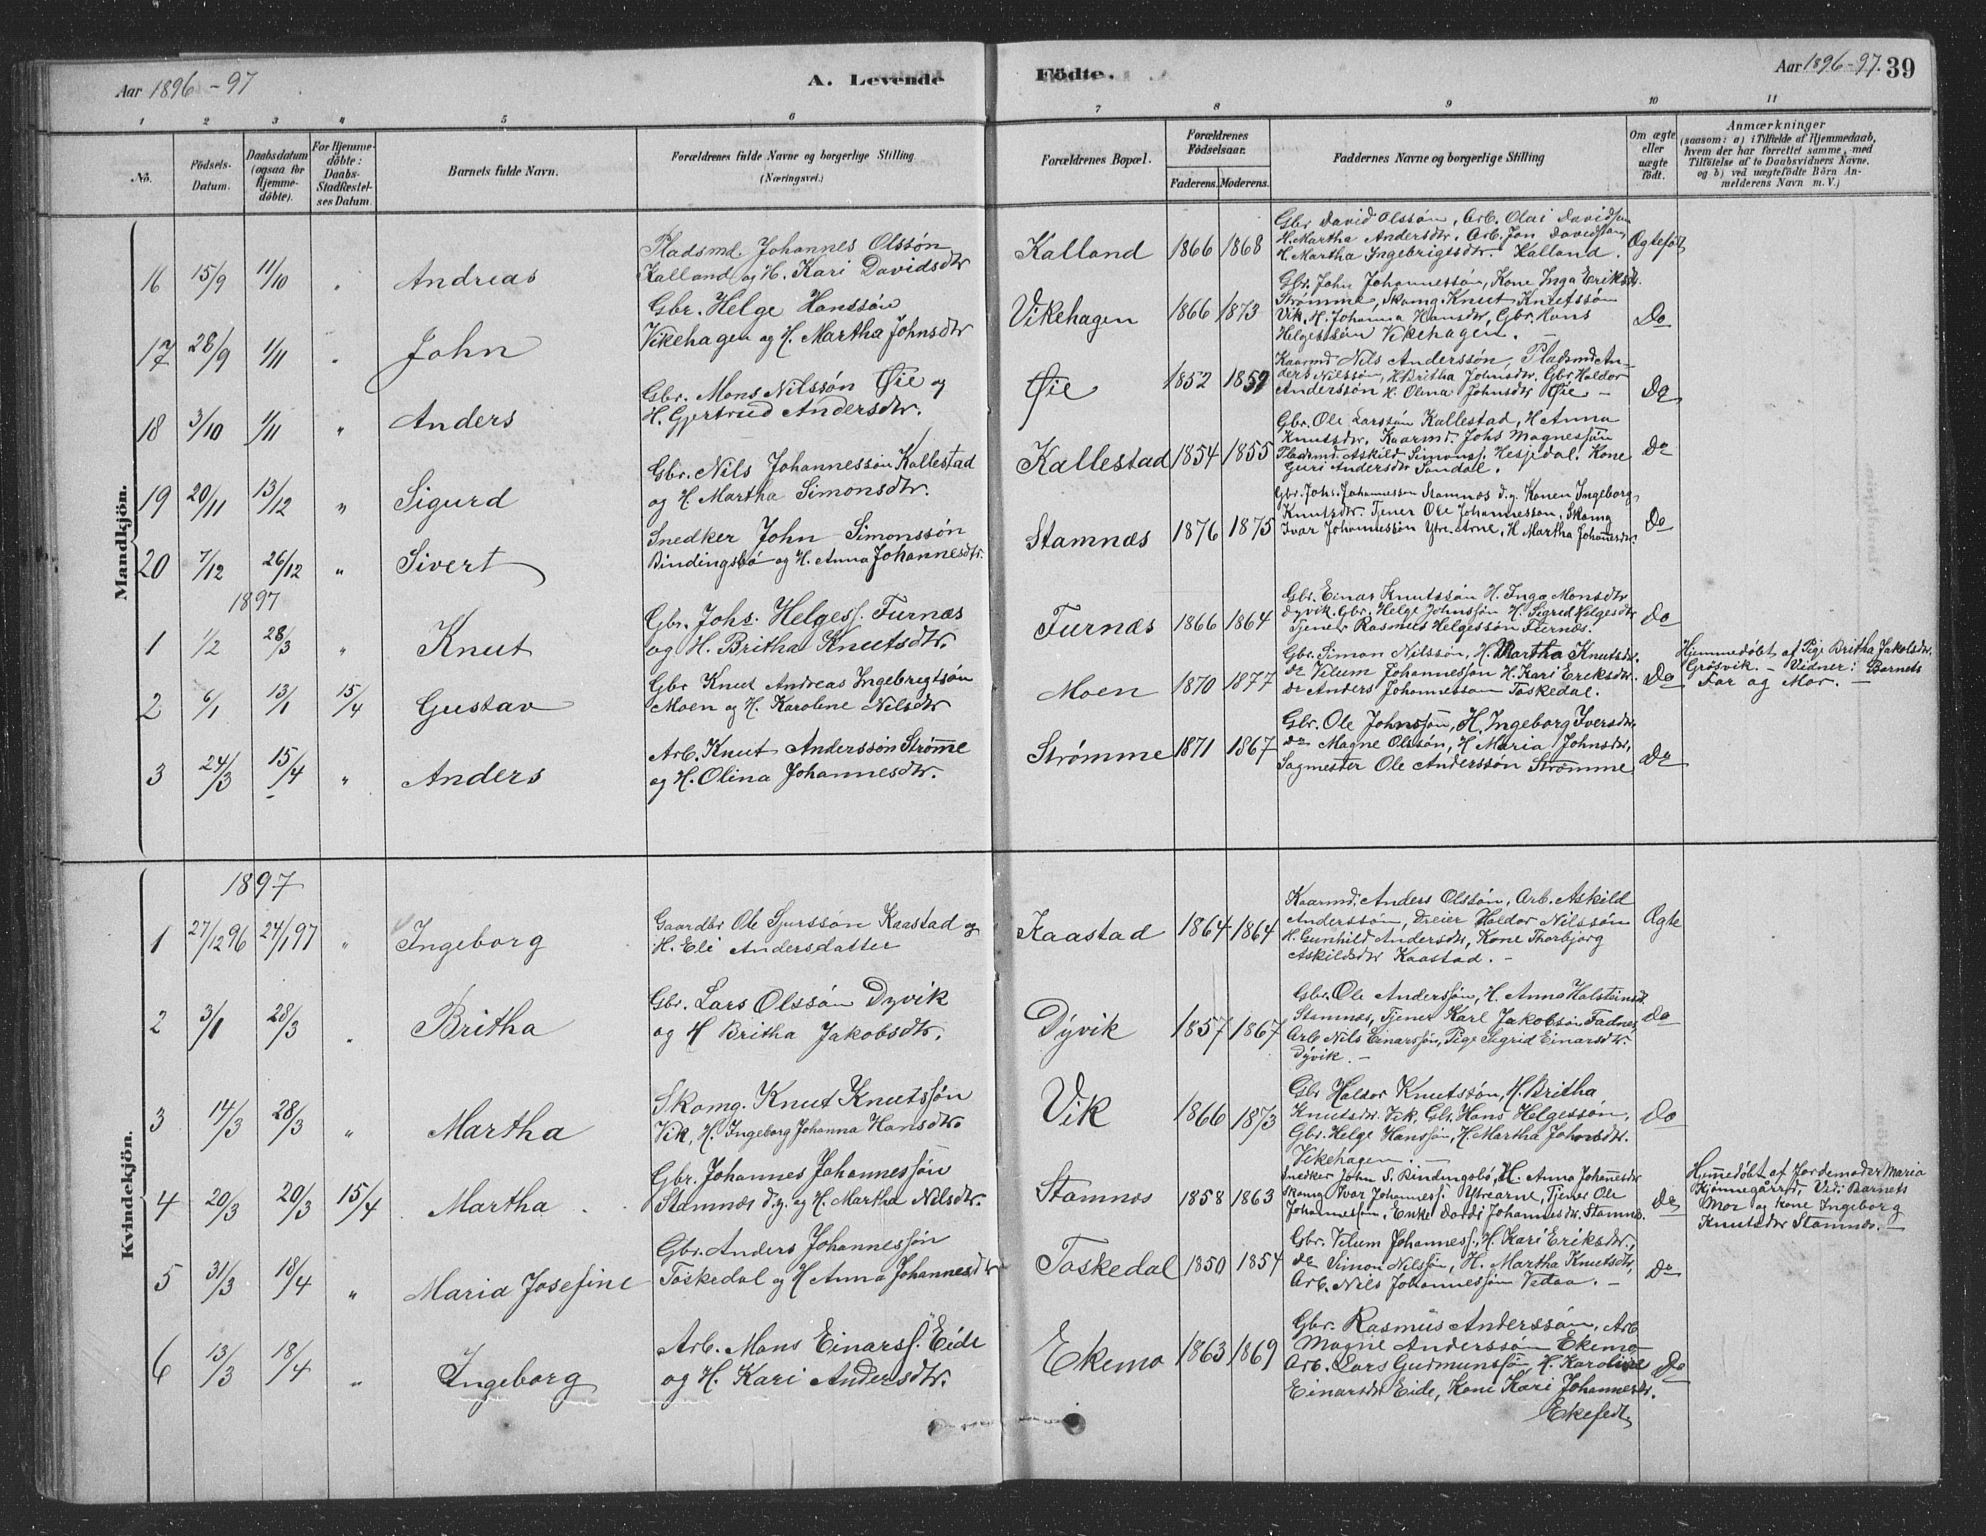 Aar 1896-97
A. Levende
Födte.
Aar 1896-97. 39
1 2 3 4 5 6 7 8 9 10 11
No.
Födsels-
Datum.
Daabsdatum
(ogsaa for
Hjemme-
döbte).
For Hjemme-
döbte:
Daabs-
Stadfæstel-
ses Datum.
Barnets fulde Navn.
Forældrenes fulde Navne og borgerlige Stilling
(Næringsvei.)
Forældrenes Bopæl.
Forældrenes
Födselsaar.
Faderens. Moderens.
Faddernes Navne og borgerlige Stilling
Om ægte
eller
uægte
födt.
Anmærkninger
(saasom: a) i Tilfælde af Hjemmedaab,
hvem der har forrettet samme, med
Tilföielse af to Daabsvidners Navne,
og b) ved uægtefödte Börn An-
melderens Navn m. V.)
Mandkjön.
16 15/9 11/10 " Andreas
Pladsmd. Johannes Olssön
Kalland og H. Kari Davidsdtr
Kalland 1866 1868
Gbr David Olssön, Arb. Olai Davidssøn
H. Martha Andersdtr. Arb. Jon Davidssøn,
H. Martha Ingebrigtsdtr. Kalland.
Ægtefödt
17 28/9 1/11 " John
Gbr. Helge Hanssön
Vikehagen og H. Martha Johnsdtr
Vikehagen 1866 1873
Gbr. John Johannessön, Kone Inga Eriksdt.
Strömme, Skomg. Knut Knutssön
Vik, H. Johanna Hansdtr, Gbr. Hans
Helgessön Vikehagen. —
Do
18 3/10 1/11 " Anders
Gbr. Mons Nilssön Øie og
H. Gjertrud Andersdtr.
Øie 1852 1859
Kaarmd Nils Anderssön, Pladsmd An-
ders Nilssön, H. Britha Johnsdtr. Gbr Haldor
Anderssön H. Olina Johnsdtr Øie —
Do
19 20/11 13/12 " Sigurd
Gbr. Nils Johannessön Kallestad
og H. Martha Simonsdtr.
Kallestad 1854 1855
Gbr. Ole Larssön Kallestad, H Anna
Knutsdtr. Kaarmd. Johs Magnessön
Pladsmd. Askild Simonss. Hesjedal. Kone
Guri Andersdtr Sandal.
Do
20 7/12 26/12 " Sivert
Snedker John Simonssön
Bindingsbö og H. Anna Johannesdtr.
Stamnæs 1876 1875
Gbr. Johs. Johannessön Stamnæs d.y. Konen Ingeborg
Knutsdtr. Tjener Ole Johannessön, Skomg
Ivar Johannessön Ytre-Arne, H Martha Johannesdtr.
Do
1897
1 1/2 28/3 " Knut
Gbr. Johs. Helgess. Furnæs
og H. Britha Knutsdtr.
Furnæs 1866 1864
Gbr. Einar Knutssön H. Inga Monsdtr
Dyvik. Gbr. Helge Johnssön H. Sigrid Helgesdtr
Tjener Rasmus Helgessön Furnæs.
Do
2 6/1 13/1 15/4 Gustav
Gbr Knut Andreas Ingebrigtsön
Moen og H. Karoline Nilsdtr
Moen 1870 1877
Gbr. Simon Nilssön, H. Martha Knutsdtr.
do Vilum Johannessön H. Kari Eriksdtr.
do Anders Johannessøn Toskedal.
Do
Hjemmedöbt af Pige Britha Jakobsdtr.
Grösvik. — Vidner: Barnets
Far og Mor. —
3 24/3 15/4 " Anders
Arb. Knut Anderssön Strömme
og H. Olina Johannesdtr.
Strömme 1871 1867
Gbr. Ole Johnssön, H. Ingeborg Iversdtr,
do Magne Olssön, H Maria Johnsdtr,
Sagmester Ole Anderssön Strömme
Do
Kvindekjön.
1897
1 27/12 96 24/1 97 " Ingeborg
Gaardbr Ole Sjurssön Kaastad og
H. Eli Andersdatter
Kaastad 1864 1864
Kaarmd. Anders Olssön, Arb. Askild
Anderssön, Dreier Haldor Nilssön
H. Gunhild Andersdtr, Kone Thorbjörg
Askildsdtr Kaastad. —
Ægte
2 3/1 28/3 " Britha
Gbr. Lars Olssön Dyvik
og H Britha Jakobsdtr.
Dyvik 1857 1867
Gbr. Ole Anderssön, H. Anna Holsteinsdt.
Stamnæs, Tjener Karl Jakobsön Fadnes,
Arb Nils Einarssön, Pige Sigrid Einarsdtr.
Dyvik. —
do
3 14/3 28/3 " Martha
Skomg. Knut Knutssön
Vik, H. Ingeborg Johanna Hansdtr.
Vik 1866 1873
Gbr Haldor Knutssön, H. Britha
Knutsdtr. Vik, Gbr. Hans Helgessön,
Gbr. Helge Hanssön, H. Martha Johnsdtr.
Vikehagen. —
Do
4 20/3 20/3 15/4 Martha
Gbr. Johannes Johannessön
Stamnæs d.y. og H. Martha Nilsdtr.
Stamnæs 1858 1863
Snedker John S. Bindingsbö, H. Anna Johannesdtr
Skomg Ivar Johanness. Ytrearne, Tjener Ole
Johannessön, Enke Dordi Johannesdtr. Stamnes.
Do
Hjemmedöbt af Jordemoder Maria
Vid: Barnets
Mor og kone Ingeborg
Knutsdtr Stamnæs. —
5 31/3 18/4 " Maria Josefine
Gbr. Anders Johannessön
Toskedal og H Anna Johannesdtr
Toskedal 1850 1854
Gbr. Vilum Johanness., H. Kari Eriksdtr.,
do Simon Nilssön, H. Martha Knutsdtr,
Arb. Nils Johannessön Vedaa. —
Do
6 13/3 18/4 " Ingeborg
Arb. Mons Einarss. Eide
og H. Kari Andersdtr.
Ekemo 1863 1869
Gbr. Rasmus Anderssön, Arb
Magne Anderssön Ekemo
Arb. Lars Gudmunssön, H. Karoline
Einarsdtr Eide, Kone Kari Johannesdtr.
Ekefedt
Do